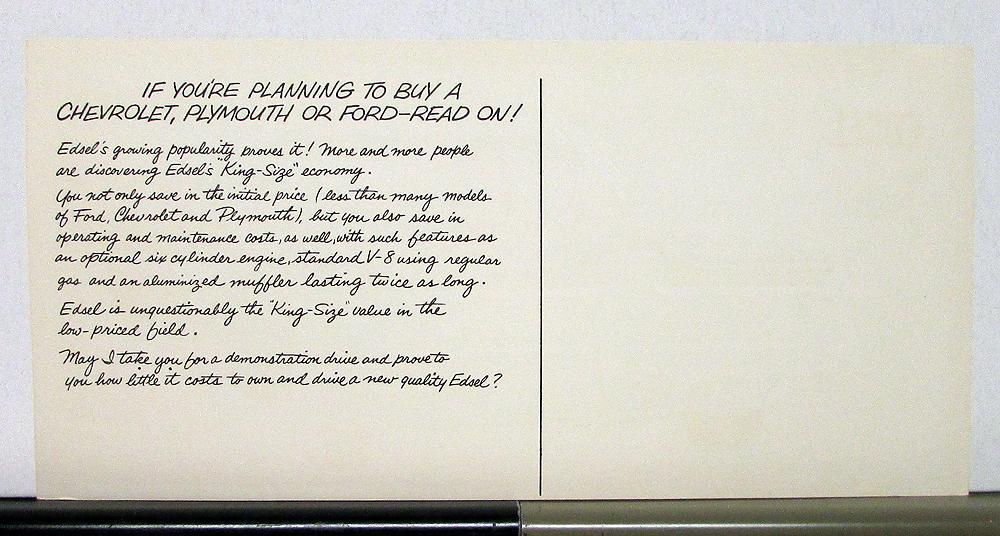 IF YOU'RE PLANNING TO BUY A
CHEVROLET, PLYMOUTH OR FORD-READ ON!
Edsel's growing popularity proves it! More and more people
are discovering Edsel's "King-Size" economy.
You not only save in the initial price (less than many models
of Ford, Chevrolet and Plymouth), but you also save in
operating and maintenance costs, as well, with such features as
an optional six cylinder engine, standard V-8 using regular
gas and an aluminized muffler lasting twice as long.
Edsel is unquestionably the "King-Size" value in the
low-priced field.
May I take you for a demonstration drive and prove to
you how little it costs to own and drive a new quality Edsel?